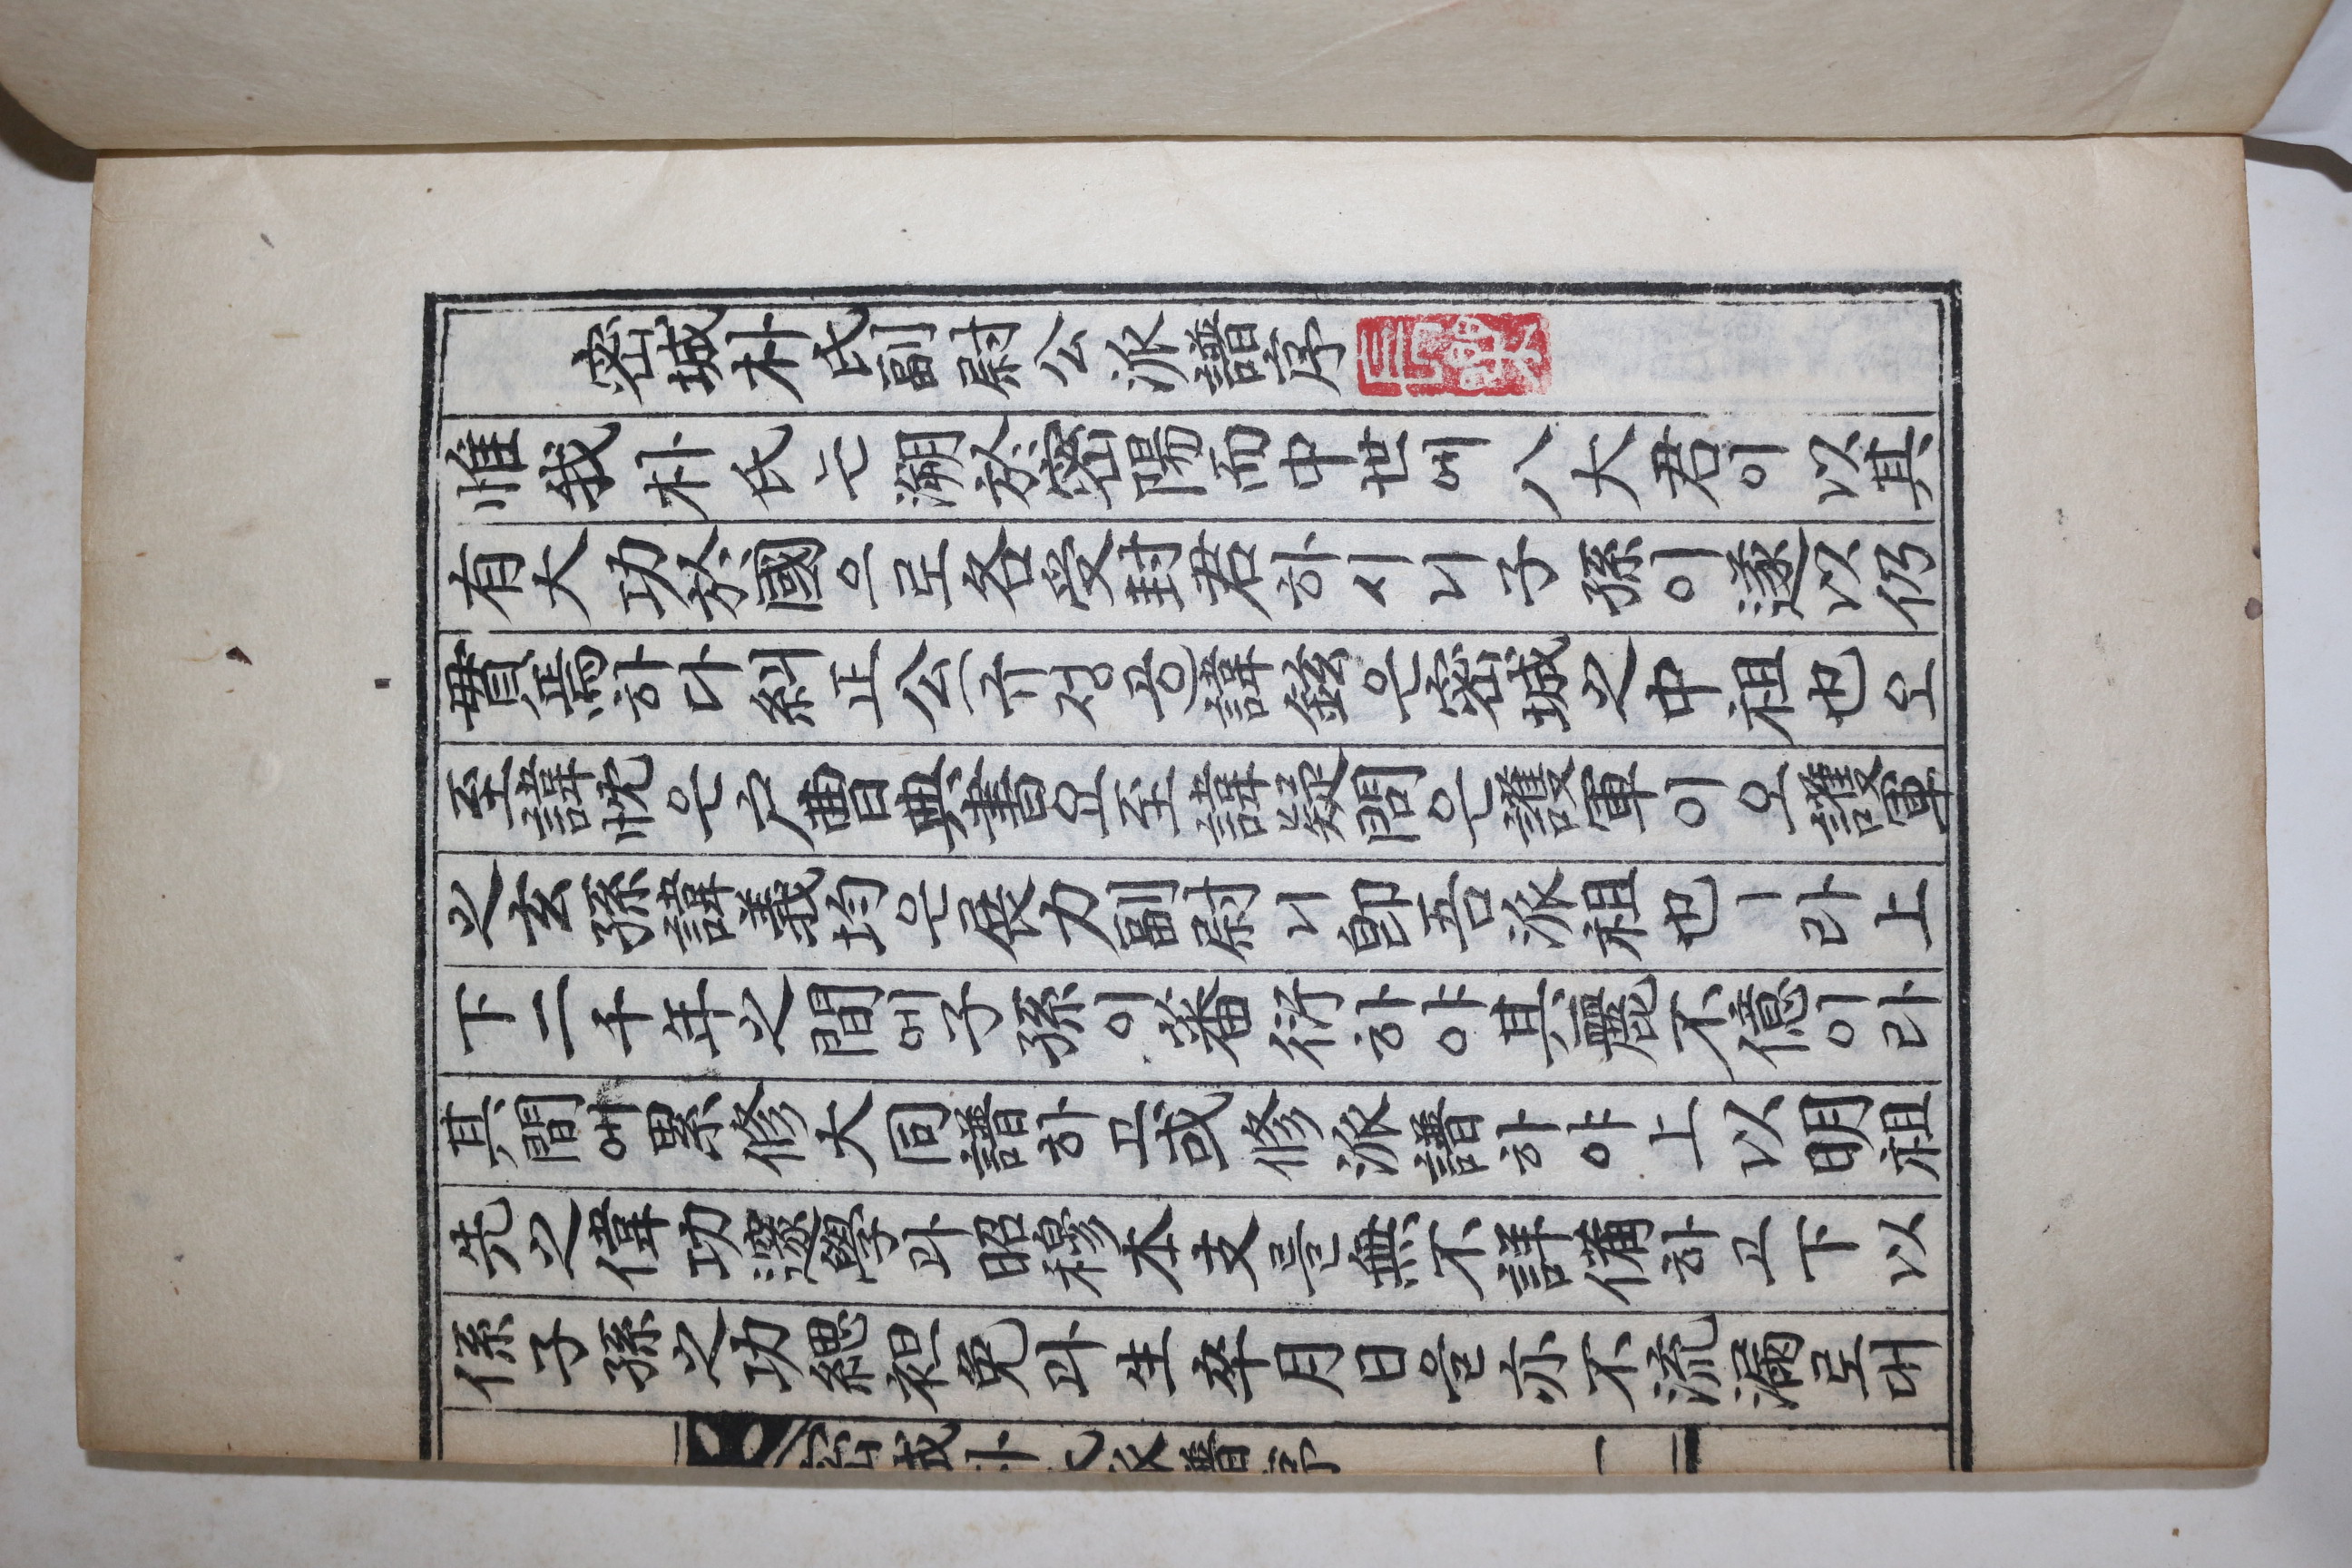 密城朴氏副尉公派譜序
惟我朴氏는溯於密陽而中世에八大君이以其
有大功於國으로各受封君하시니子孫이遂以仍
貫焉하다糾正公(규정공)諱鉉은密城之中祖也오
至諱忱은户曹典書요至諱疑問은護軍이오護軍
之玄孫諱義均은展力副尉니卽吾派祖也ㅣ라上
下二千年之間에子孫이蕃衍하야其麗不億이라
其間에累修大同譜하고或修派譜하야上以明祖
先之偉功邃學과昭穆本支를無不詳備하고下以
係子孫之功緦袒免과生卒月日을亦不流漏로대
密城朴氏派譜序
一